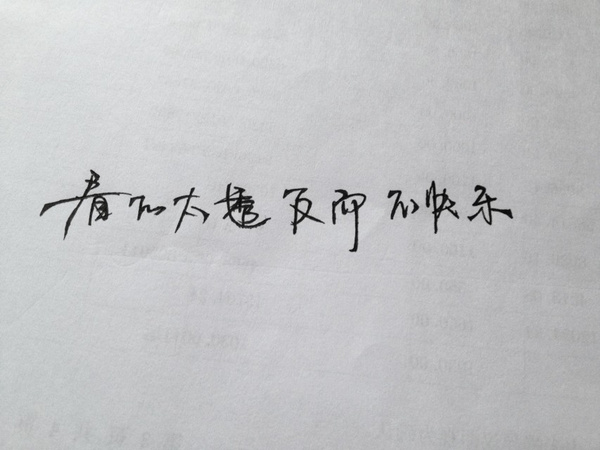 看的太透反而不快乐